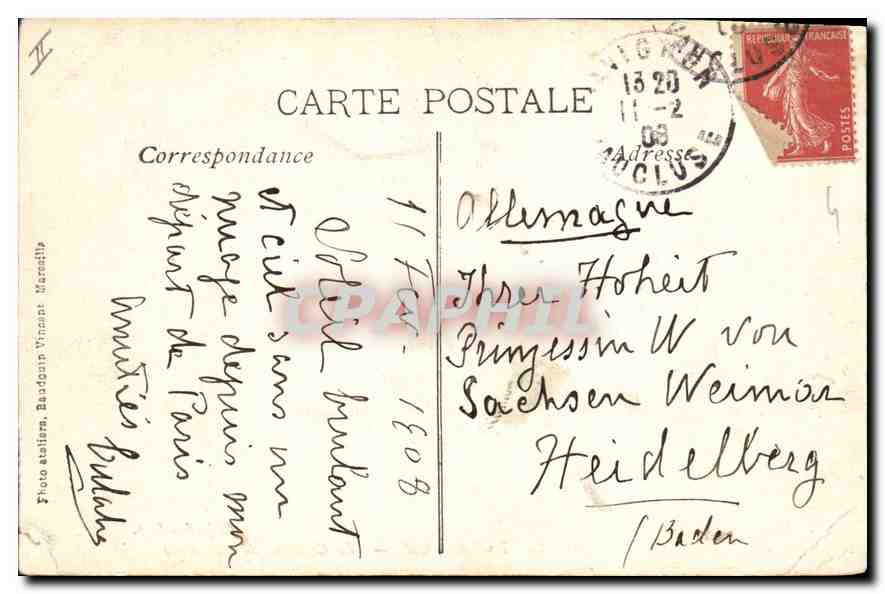 II
CARTE POSTALE
Correspondance
Adresse
REPUBLIQUE FRANÇAISE
POSTES
13 20
11 -2
08
VAUCLUSE
11 Fevr. 1908
Soleil brulant
et ciel sans un
nuage depuis mon
départ de Paris
Amitiés
Allemagne
Ihrer Hoheit
Prinzessin W von
Sachsen Weimar
Heidelberg
/Baden
Photo ateliers, Baudouin Vincent Marseille
CARAPHIL